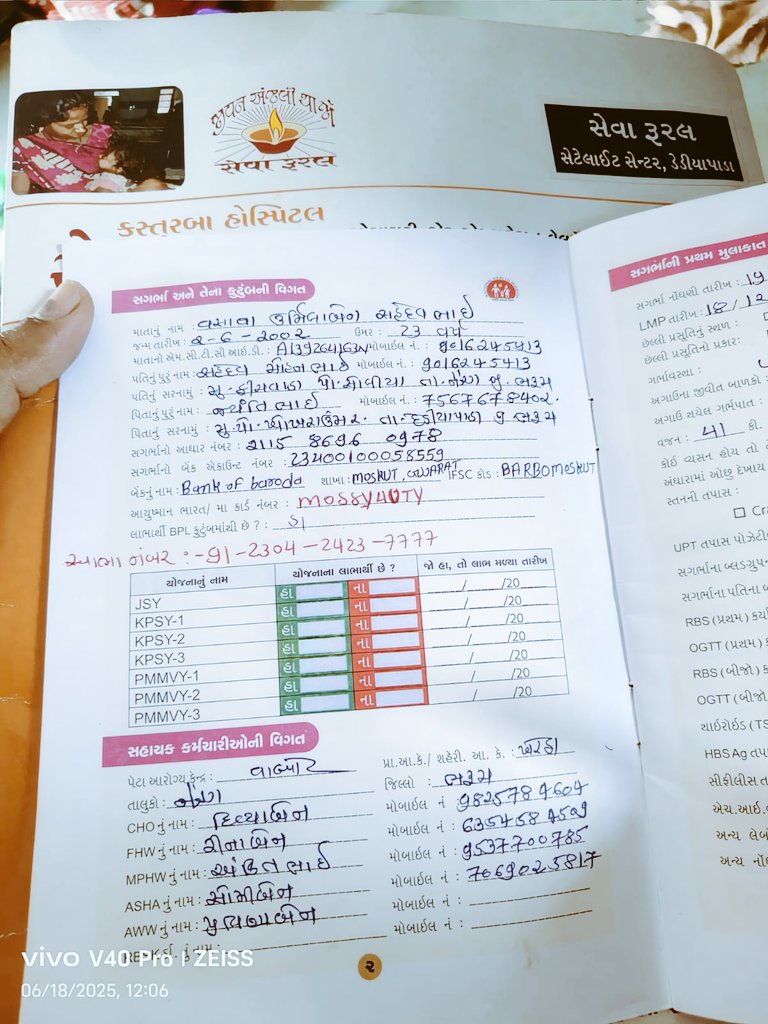 જીવન અંજલી થાજો
સેવા રૂરલ
સેવા રૂરલ
સેટેલાઈટ સેન્ટર, ડેડીયાપાડા
કસ્તરબા હોસ્પિટલ
સગર્ભા અને તેના કુટુંબની વિગત
માતાનું નામ : વસાવા ઉર્મિલાબેન સહદેવભાઈ
જન્મ તારીખ : 2-6-2002 ઉંમર : 23 વર્ષ
માતાનો એમ.સી.ટી.સી.આઈ.ડી. : મોબાઈલ નં. : 9016245413
પતિનું પુરું નામ : સહદેવ મોહનભાઈ મોબાઈલ નં. : 9016245413
પતિનું સરનામું : મુ. પો. તા. જી. ભરૂચ
પિતાનું પુરું નામ : જયંતિભાઈ મોબાઈલ નં. : 7567678402
પિતાનું સરનામું : મુ.પો. તા. દેડીયાપાડા જી ભરૂચ
સગર્ભાનો આધાર નંબર : 2115 8696 0978
સગર્ભાનો બેંક એકાઉન્ટ નંબર : 23400100058559
બેંકનું નામ : Bank of baroda શાખા : moskUT, GUJARAT IFSC કોડ : BARBOMOSKUT
આયુષ્માન ભારત/ મા કાર્ડ નંબર :
લાભાર્થી BPL કુટુંબમાંથી છે ? : હા
આભા નંબર :- 91-2304-2423-7777
યોજનાનું નામ યોજનાના લાભાર્થી છે ? જો હા, તો લાભ મળ્યા તારીખ
JSY હા ના / /20
KPSY-1 હા ના / /20
KPSY-2 હા ના / /20
KPSY-3 હા ના / /20
PMMVY-1 હા ના / /20
PMMVY-2 હા ના / /20
PMMVY-3 હા ના / /20
સહાયક કર્મચારીઓની વિગત
પેટા આરોગ્ય કેન્દ્ર : પ્રા.આ.કે./ શહેરી. આ. કે. :
તાલુકો : નેત્રંગ જિલ્લો : ભરૂચ
CHO નું નામ : દિવ્યાબેન મોબાઈલ નં : 9825784604
FHW નું નામ : રીનાબેન મોબાઈલ નં : 6354584509
MPHW નું નામ : અંકિતભાઈ મોબાઈલ નં : 9537700785
ASHA નું નામ : સોમીબેન મોબાઈલ નં : 7069025817
AWW નું નામ : મોબાઈલ નં :
નું નામ : મોબાઈલ નં :
૨
સગર્ભાની પ્રથમ મુલાકાત
સગર્ભા નોંધણી તારીખ : 19
LMP તારીખ : 18/12
છેલ્લી પ્રસુતિનું સ્થળ :
છેલ્લી પ્રસુતિનો પ્રકાર:
ગર્ભાવસ્થા :
અગાઉના જીવીત બાળકો :
અગાઉ થયેલ ગર્ભપાત :
વજન : 41 કી.
કોઈ વ્યસન હોય તો
અંધારામાં ઓછું દેખાય
સ્તનની તપાસ :
UPT તપાસ
સગર્ભાના બ્લડગ્રુપ
સગર્ભાના પતિના
RBS (પ્રથમ)
OGTT (પ્રથમ)
RBS (બીજો)
OGTT (બીજો)
થાઈરોઈડ
HBSAg તપા
સીકીલસેલ
એચ.આઈ.
અન્ય
અન્ય
vivo V40 Pro | ZEISS
06/18/2025, 12:06